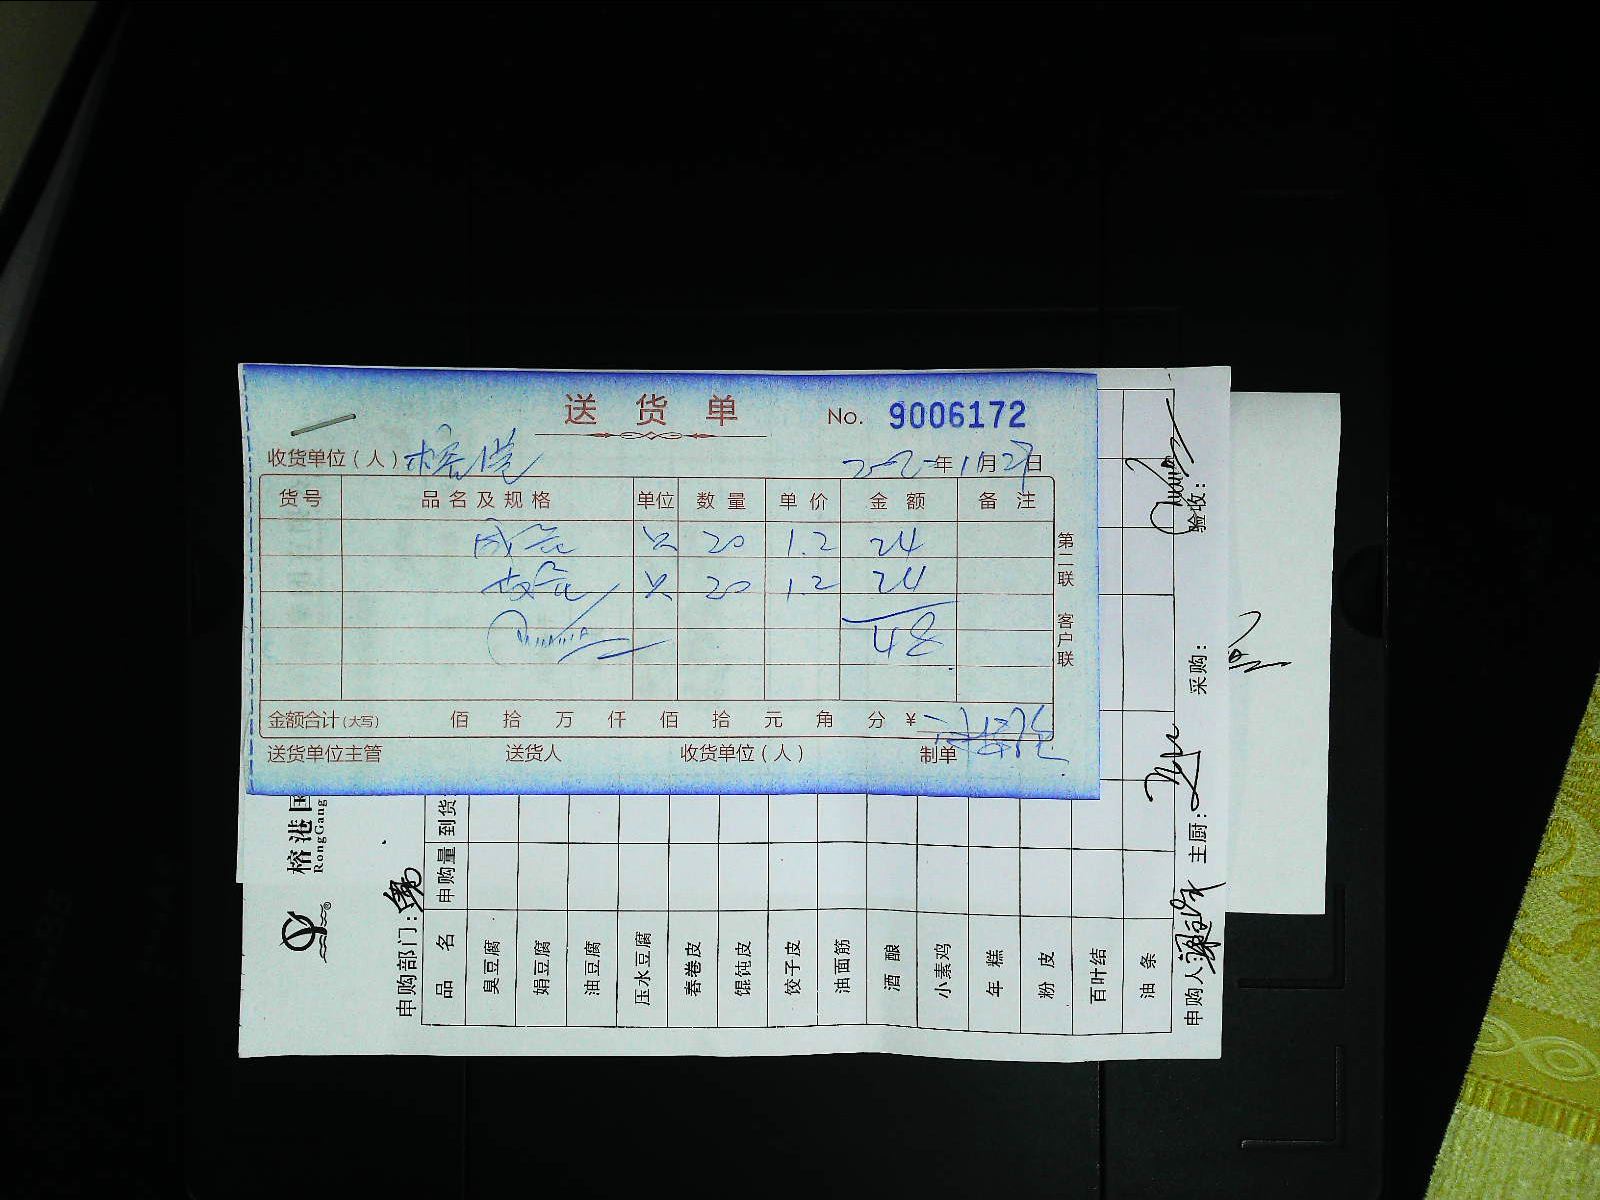 送货单
No. 9006172
收货单位(人) 榕港
年1月27日
货号 品名及规格 单位 数量 单价 金额 备注
只 20 1.2 24
只 20 1.2 24
48
金额合计(大写) 佰 拾 万 仟 佰 拾 元 角 分 ¥
送货单位主管 送货人 收货单位(人) 制单
第二联 客户联
榕港国
RongGang
申购部门:
品名 申购量 到货
臭豆腐
娟豆腐
油豆腐
压水豆腐
春卷皮
馄饨皮
饺子皮
油面筋
酒酿
小素鸡
年糕
粉皮
百叶结
油条
申购人: 主厨: 采购: 验收: